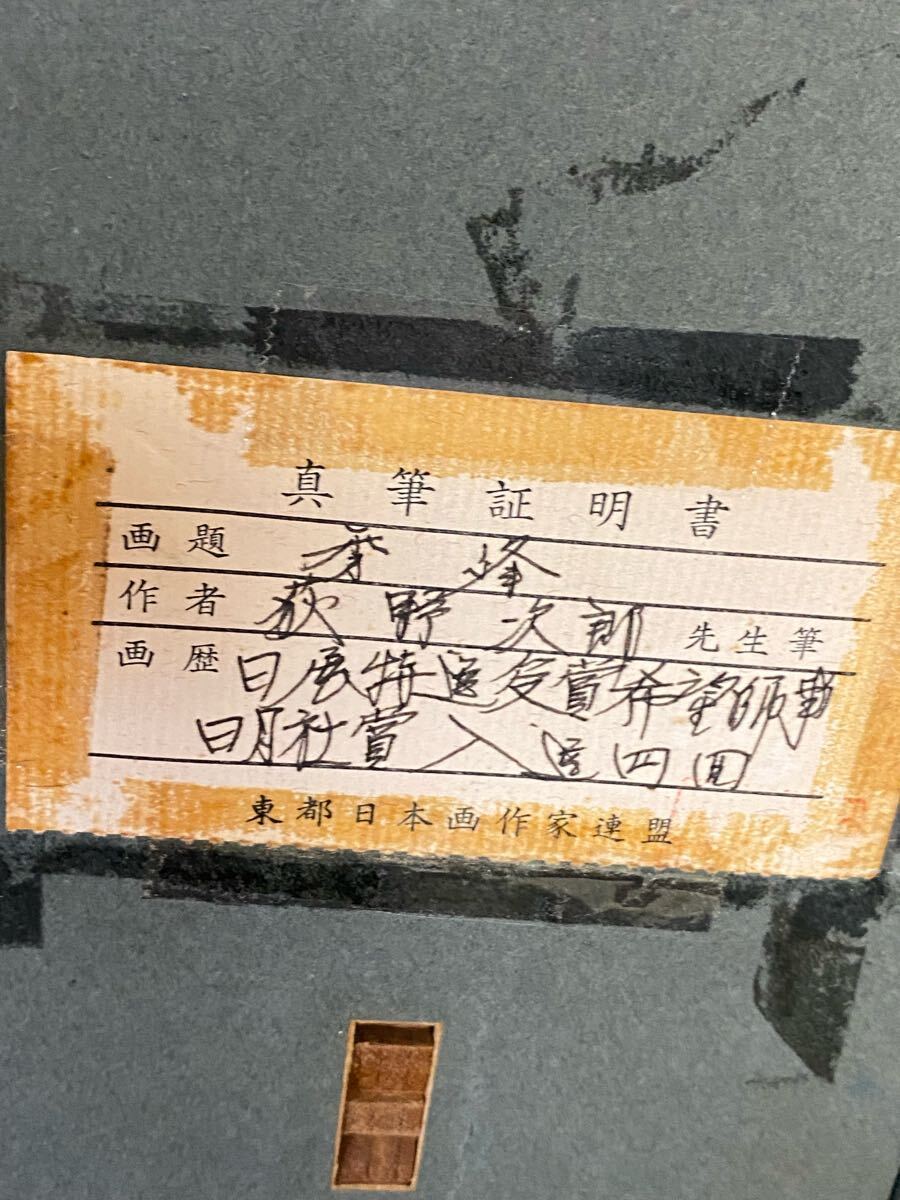 真筆証明書
画題 峰
作者 荻野次郎 先生筆
画歴 日展特選受賞希望師事
日月社賞入選四回
東都日本画作家連盟